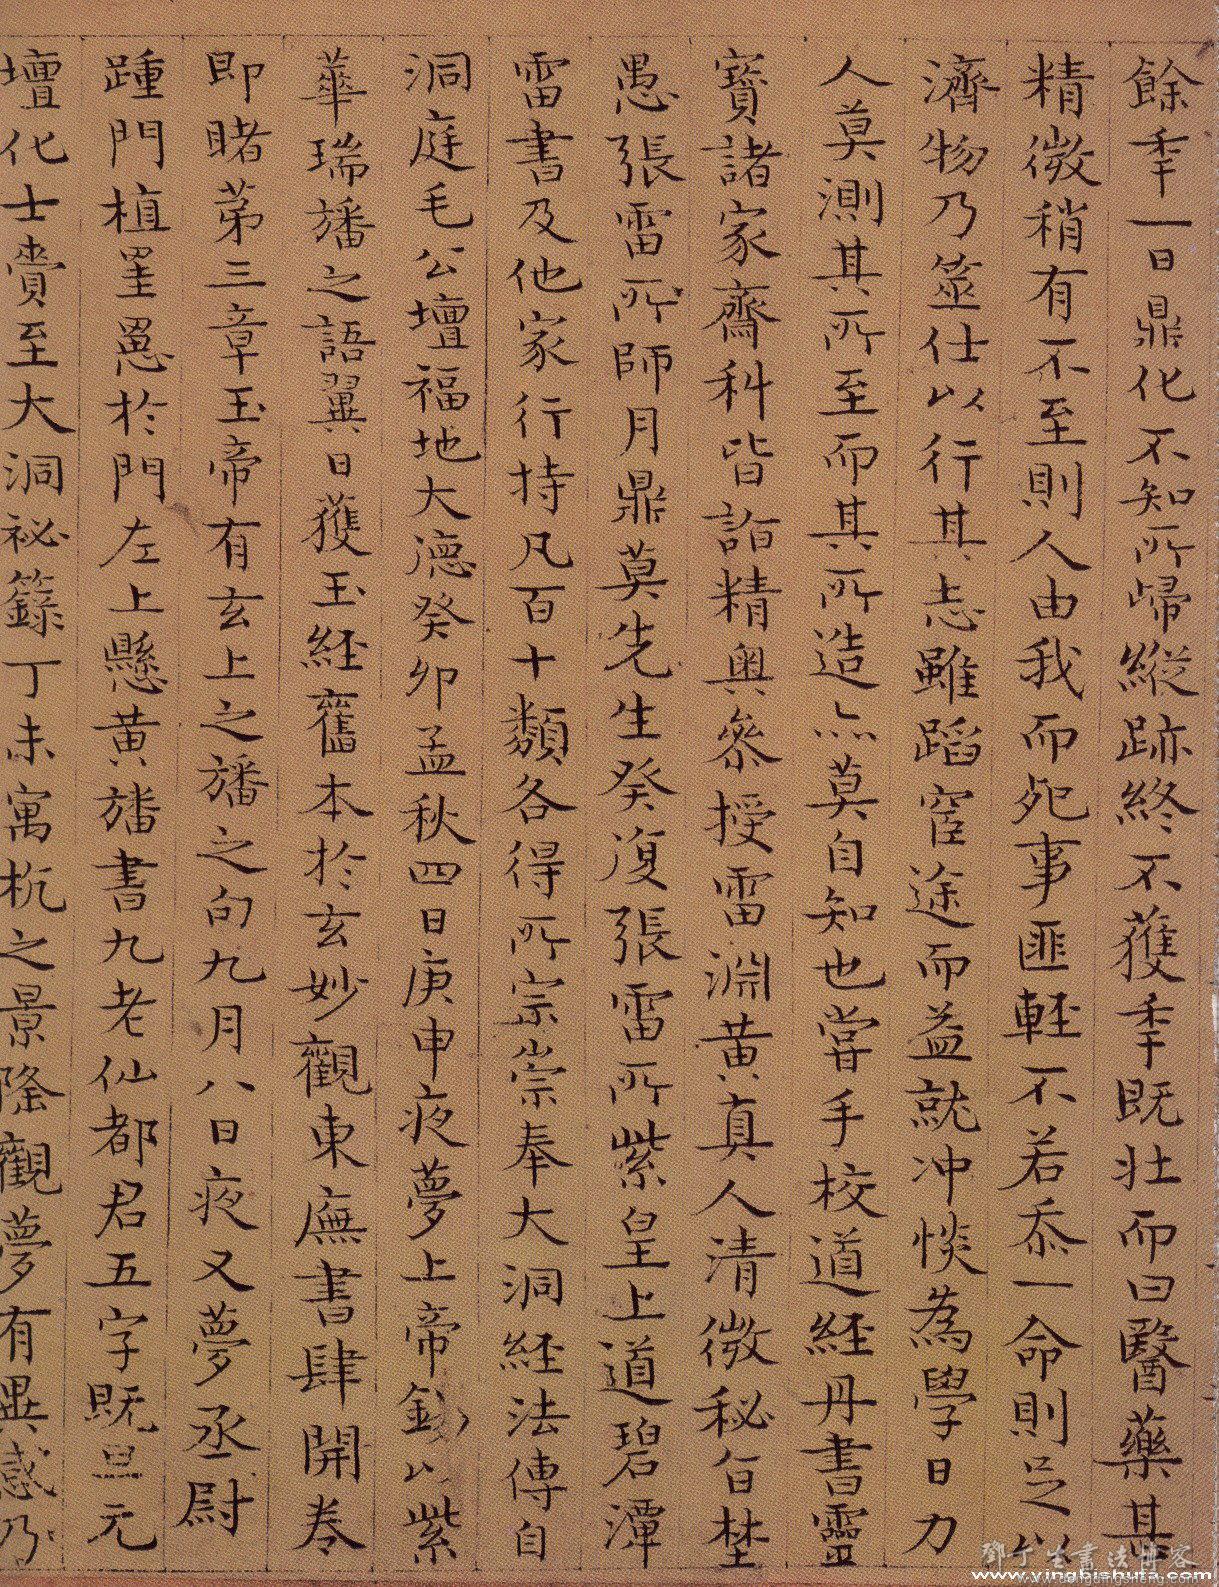 餘季一日鼎化不知所歸縱跡終不獲季既壯而曰醫藥其
精微稍有不至則人由我而死事匪輕不若忝一命則足以
濟物乃筮仕以行其志雖蹈宦途而益就冲惔為學日力
人莫測其所至而其所造亦莫自知也嘗手校道經丹書靈
寶諸家齋科皆詣精奧叅授雷淵黃真人清微秘旨埜
愚張雷所師月鼎莫先生癸復張雷所紫皇上道碧潭
雷書及他家行持凡百十類各得所宗崇奉大洞經法傳自
洞庭毛公壇福地大德癸卯孟秋四日庚申夜夢上帝錫以紫
華瑞旛之語翼日獲玉經舊本於玄妙觀東廡書肆開卷
即睹苐三章玉帝有玄上之旛之句九月八日夜又夢丞尉
踵門植罜罳於門左上懸黃旛書九老仙都君五字既旦元
壇化士賫至大洞祕籙丁未寓杭之景隆觀夢有異感乃
鄧丁生書法博客
www.yingbishufa.com